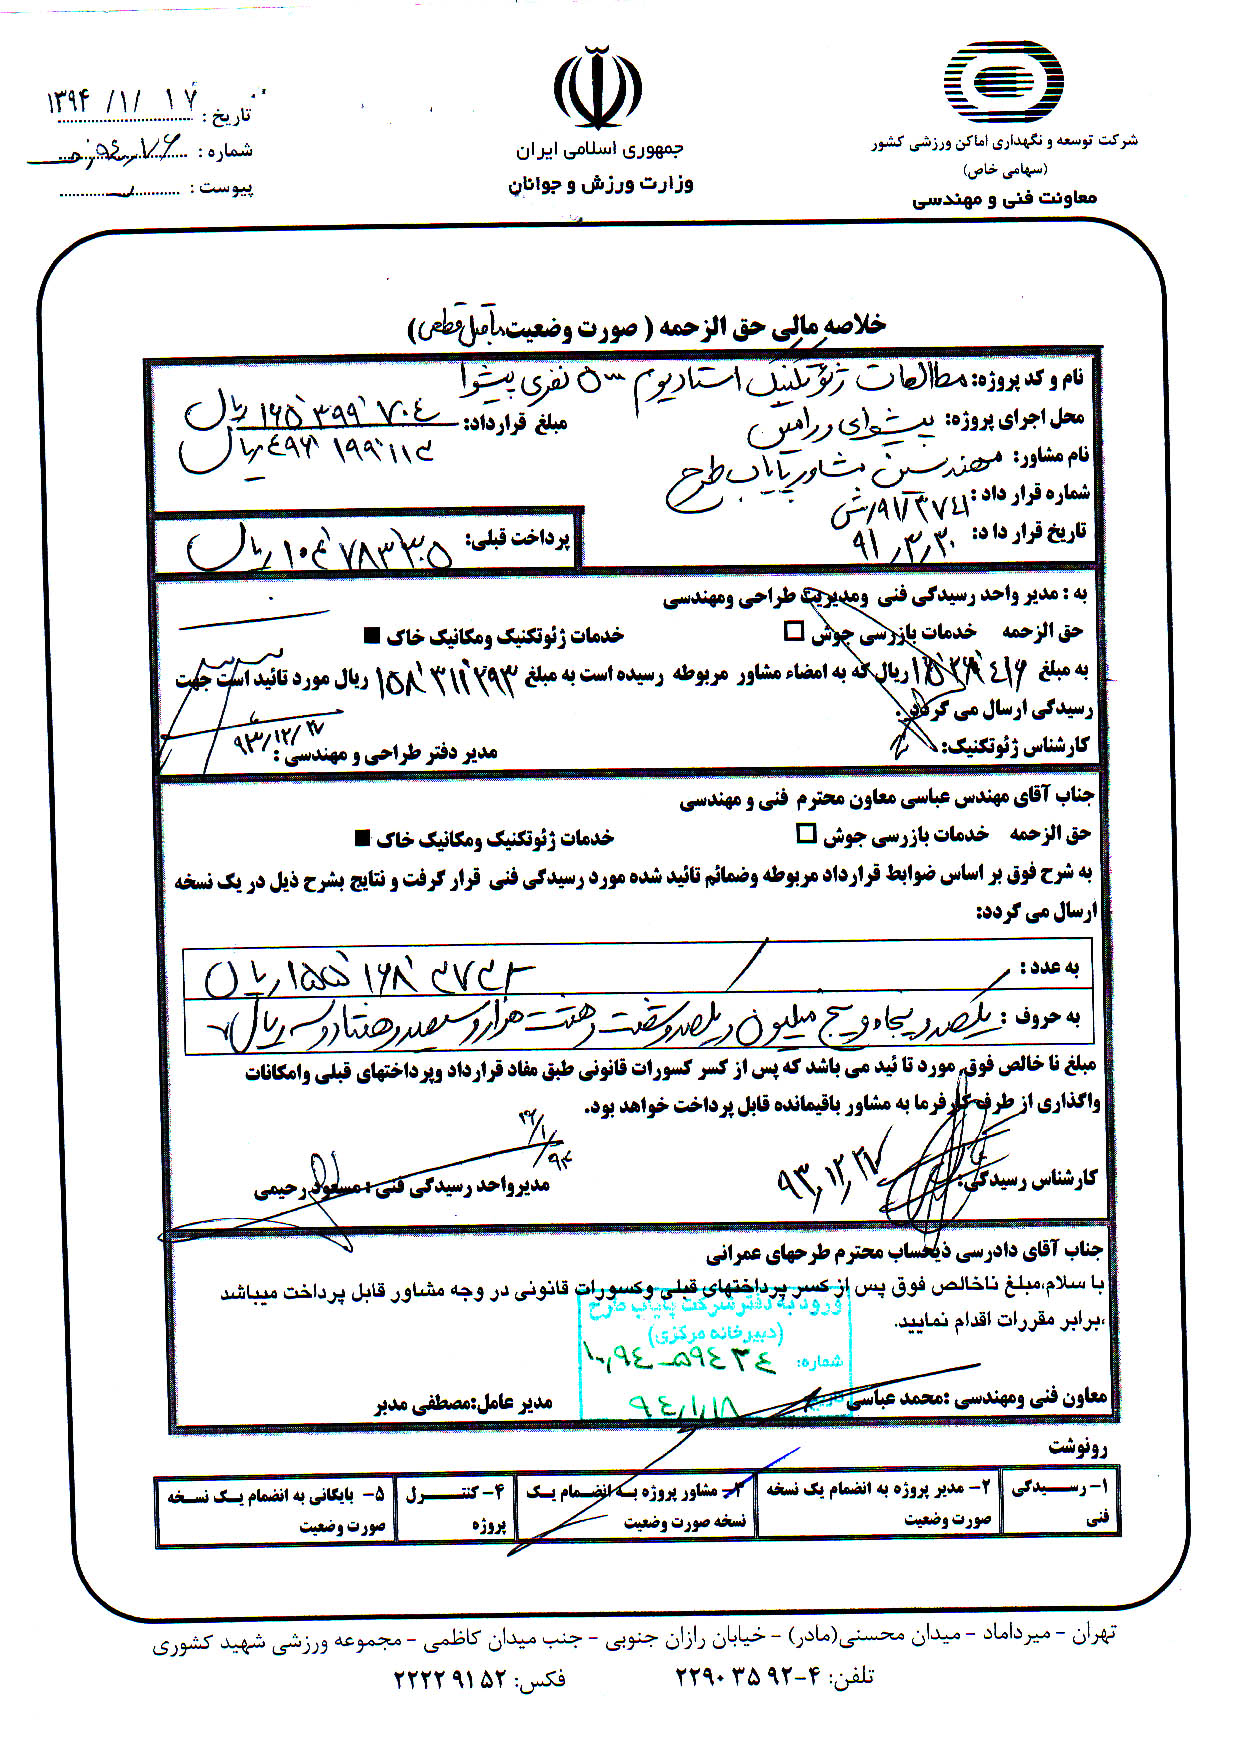 شرکت توسعه و نگهداری اماکن ورزشی کشور
(سهامی خاص)
معاونت فنی و مهندسی
جمهوری اسلامی ایران
وزارت ورزش و جوانان
تاریخ : ۱۳۹۴/۱/۱۷
شماره :
پیوست :
خلاصه مالی حق الزحمه ( صورت وضعیت ماقبل قطعی)
نام و کد پروژه: مطالعات ژئوتکنیک استادیوم ۵۰۰۰ نفری پیشوا
محل اجرای پروژه: پیشوای ورامین
مبلغ قرارداد: ۱۶۵٬۳۹۹٬۷۰۴ ریال
نام مشاور: مهندسین مشاور پایاب طرح
۴۹۶٬۱۹۹٬۱۱۲ ریال
شماره قرار داد : ۹۱/۳۷۴۱/ش
تاریخ قرار داد: ۹۱,۳,۳۰
پرداخت قبلی: ۱۰۴٬۷۸۳٬۳۰۵ ریال
به : مدیر واحد رسیدگی فنی ومدیریت طراحی ومهندسی
حق الزحمه خدمات بازرسی جوش □ خدمات ژئوتکنیک ومکانیک خاک ■
به مبلغ ریال که به امضاء مشاور مربوطه رسیده است به مبلغ ۱۵۸٬۳۱۱٬۲۹۳ ریال مورد تائید است جهت
رسیدگی ارسال می گردد.
کارشناس ژئوتکنیک:
مدیر دفتر طراحی و مهندسی : ۹۳/۱۲/۲۷
جناب آقای مهندس عباسی معاون محترم فنی و مهندسی
حق الزحمه خدمات بازرسی جوش □ خدمات ژئوتکنیک ومکانیک خاک ■
به شرح فوق بر اساس ضوابط قرارداد مربوطه وضمائم تائید شده مورد رسیدگی فنی قرار گرفت و نتایج بشرح ذیل در یک نسخه
ارسال می گردد:
به عدد : ۱۵۵٬۱۶۸٬۳۷۳ ریال
به حروف : یکصد و پنجاه و پنج میلیون و یکصد و شصت و هشت هزار و سیصد و هفتاد و سه ریال
مبلغ نا خالص فوق مورد تا ئید می باشد که پس از کسر کسورات قانونی طبق مفاد قرارداد وپرداختهای قبلی وامکانات
واگذاری از طرف کارفرما به مشاور باقیمانده قابل پرداخت خواهد بود.
کارشناس رسیدگی: ۹۳,۱۲,۲۷
مدیرواحد رسیدگی فنی : مسعود رحیمی
جناب آقای دادرسی ذیحساب محترم طرحهای عمرانی
با سلام،مبلغ ناخالص فوق پس از کسر پرداختهای قبلی وکسورات قانونی در وجه مشاور قابل پرداخت میباشد
،برابر مقررات اقدام نمایید.
ورود به دفتر شرکت پایاب طرح
(دبیرخانه مرکزی)
شماره:
۹۴,۱,۱۸
معاون فنی ومهندسی :محمد عباسی
مدیر عامل:مصطفی مدبر
رونوشت
۱- رسیدگی فنی
۲- مدیر پروژه به انضمام یک نسخه صورت وضعیت
۳- مشاور پروژه به انضمام یک نسخه صورت وضعیت
۴- کنترل پروژه
۵- بایگانی به انضمام یک نسخه صورت وضعیت
تهران - میرداماد - میدان محسنی(مادر) - خیابان رازان جنوبی - جنب میدان کاظمی - مجموعه ورزشی شهید کشوری
تلفن: ۴-۲۲۹۰۳۵۹۲ فکس: ۲۲۲۲۹۱۵۲